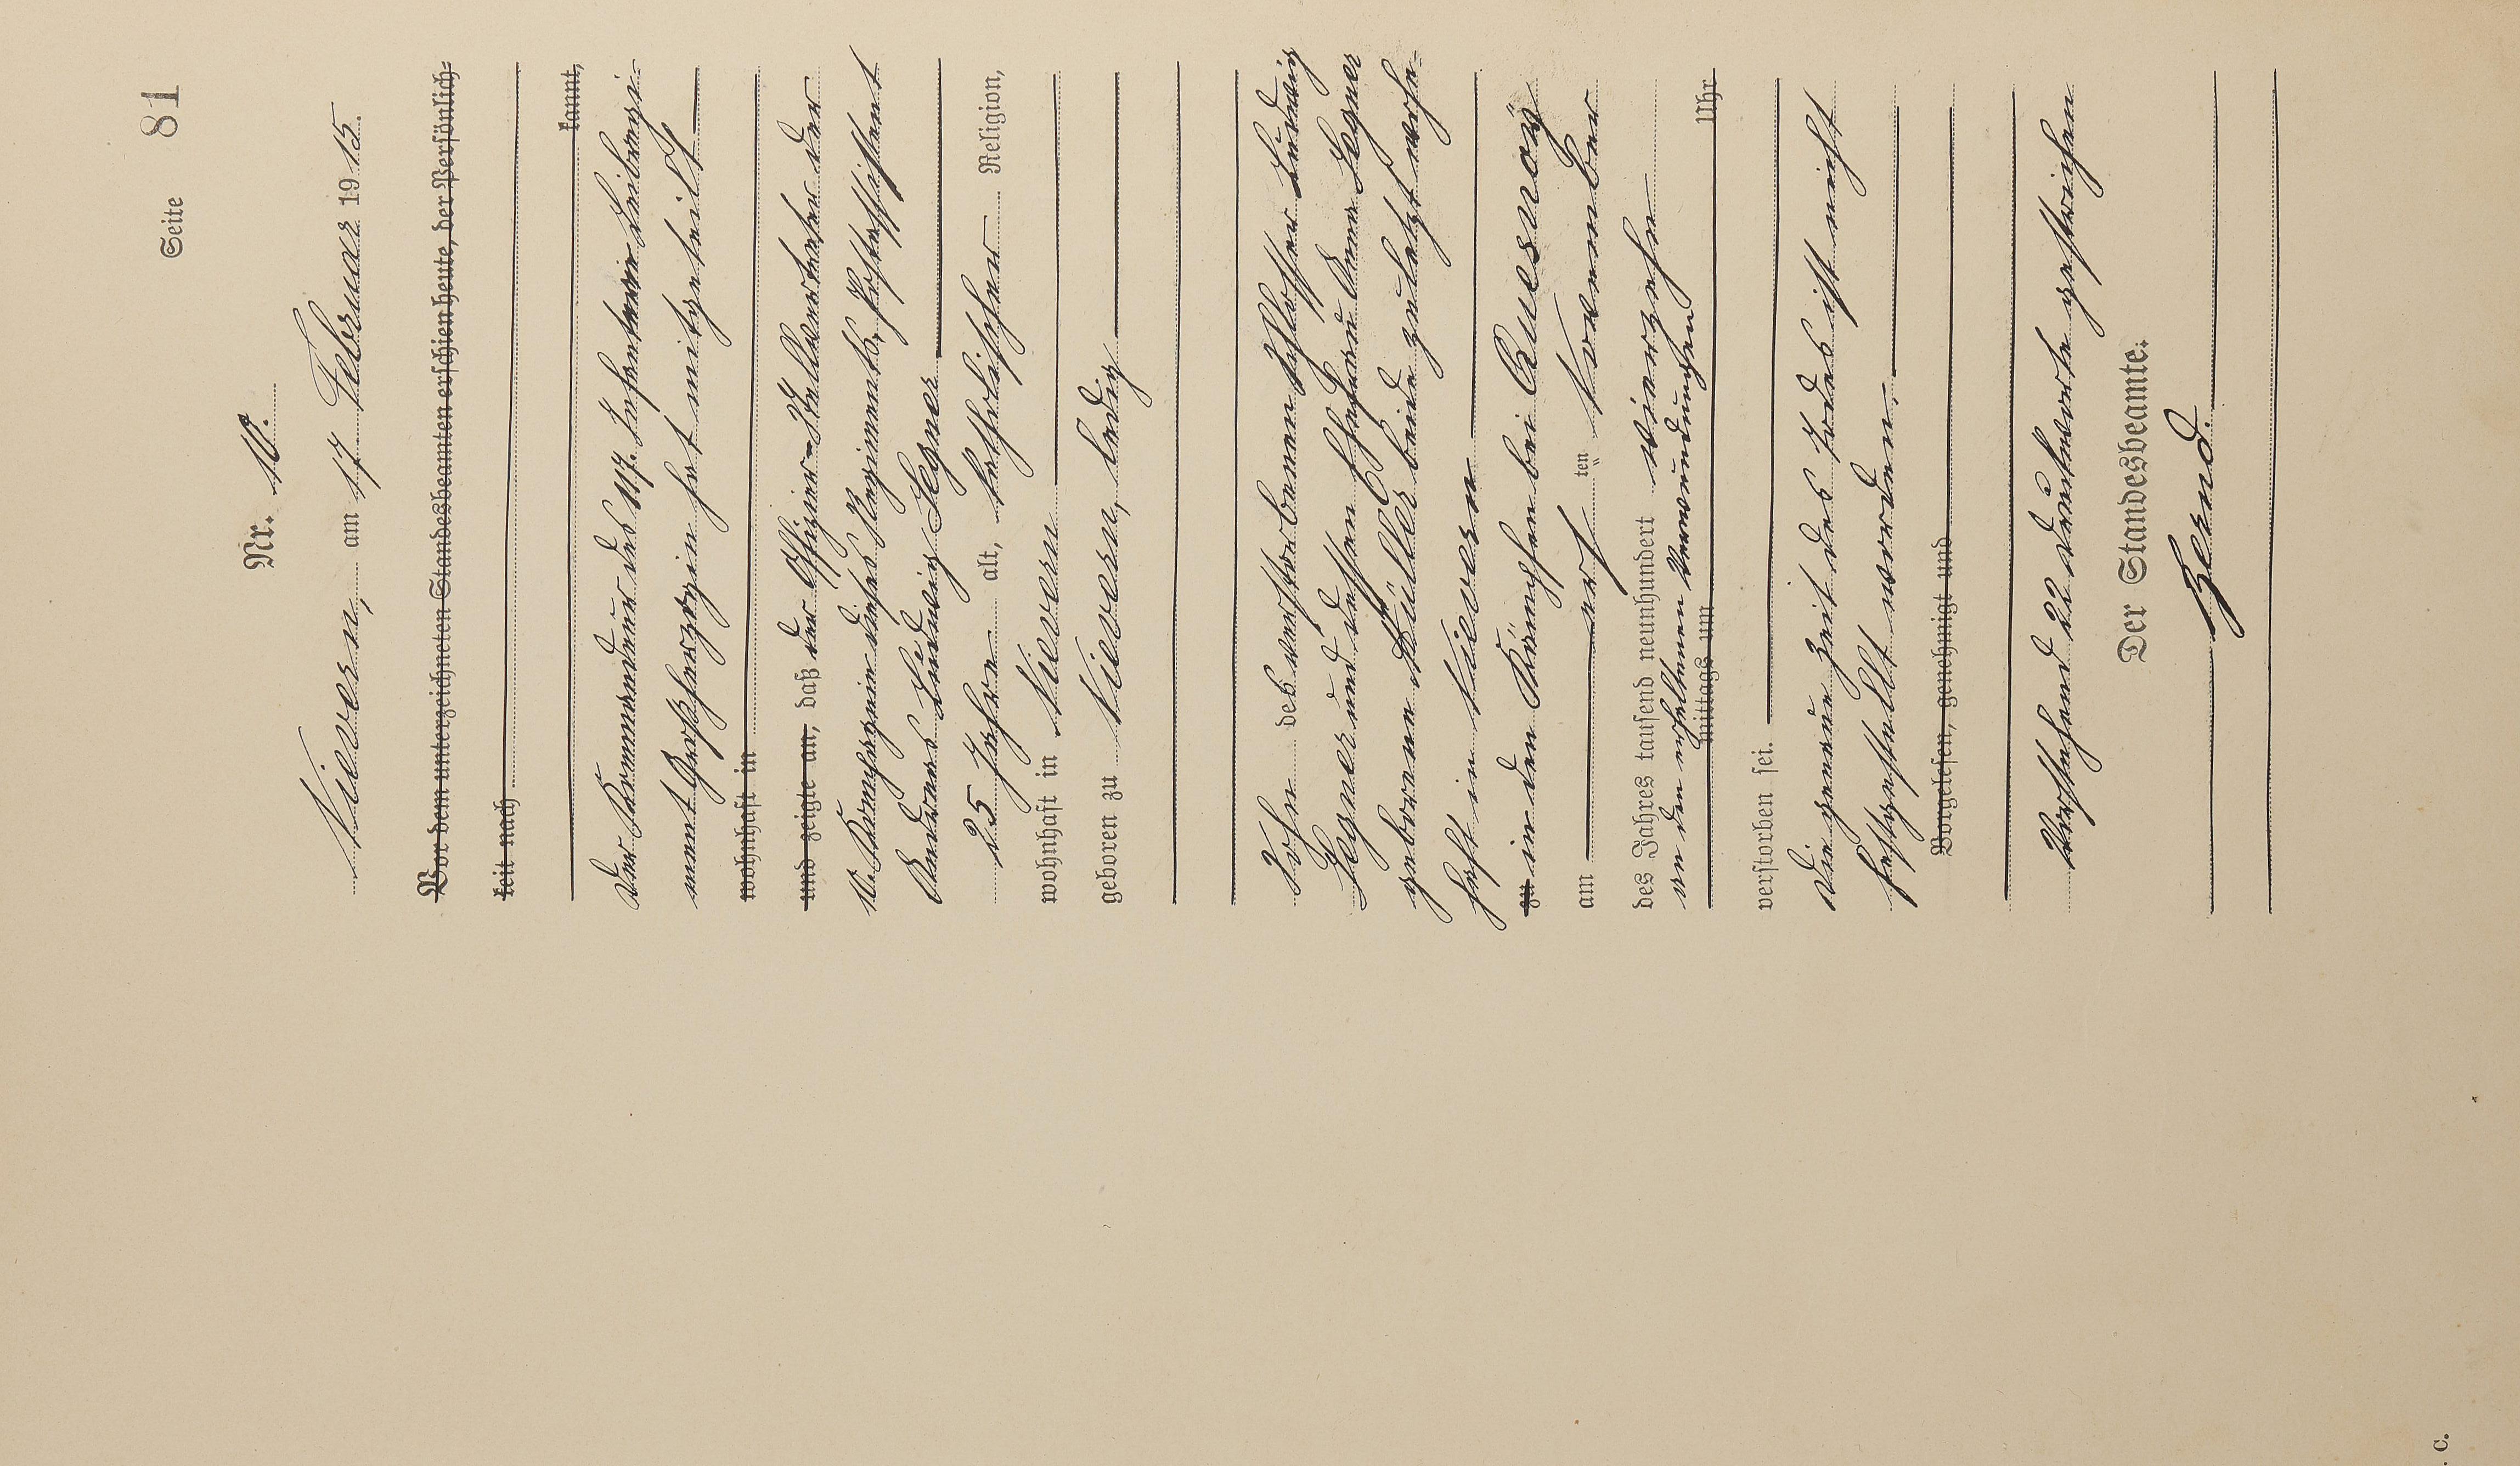 Seite 81
Nr. 10.
Nievern, am 17 Februar 1915.
Vor dem unterzeichneten Standesbeamten erschien heute, der Persönlich-
keit nach
kannt,
Der Kommandeur des 117. Infanterie Leibregi-
ment Großherzogin hat mitgeteilt
wohnhaft in
und zeigte an, daß der Offizier-Stellvertreter der
10. Kompagnie dieses Regiments,
Ludwig Legner
25 Jahre alt, katholischer Religion,
wohnhaft in Nievern
geboren zu Nievern, ledig
Sohn des verstorbenen Schlosser Ludwig
Legner und dessen Ehefrau Anna Legner
geborene Müller beide zuletzt wohn-
haft in Nievern
zu in den Kämpfen bei Quesnoy
am acht ten November
des Jahres tausend neunhundert vierzehn
an den erhaltenen Verwundungen
mittags um Uhr
verstorben sei.
Die genaue Zeit des Todes ist nicht
festgestellt worden.
Vorgelesen, genehmigt und
Vorstehend 22 Druckworte gestrichen
Der Standesbeamte.
C.